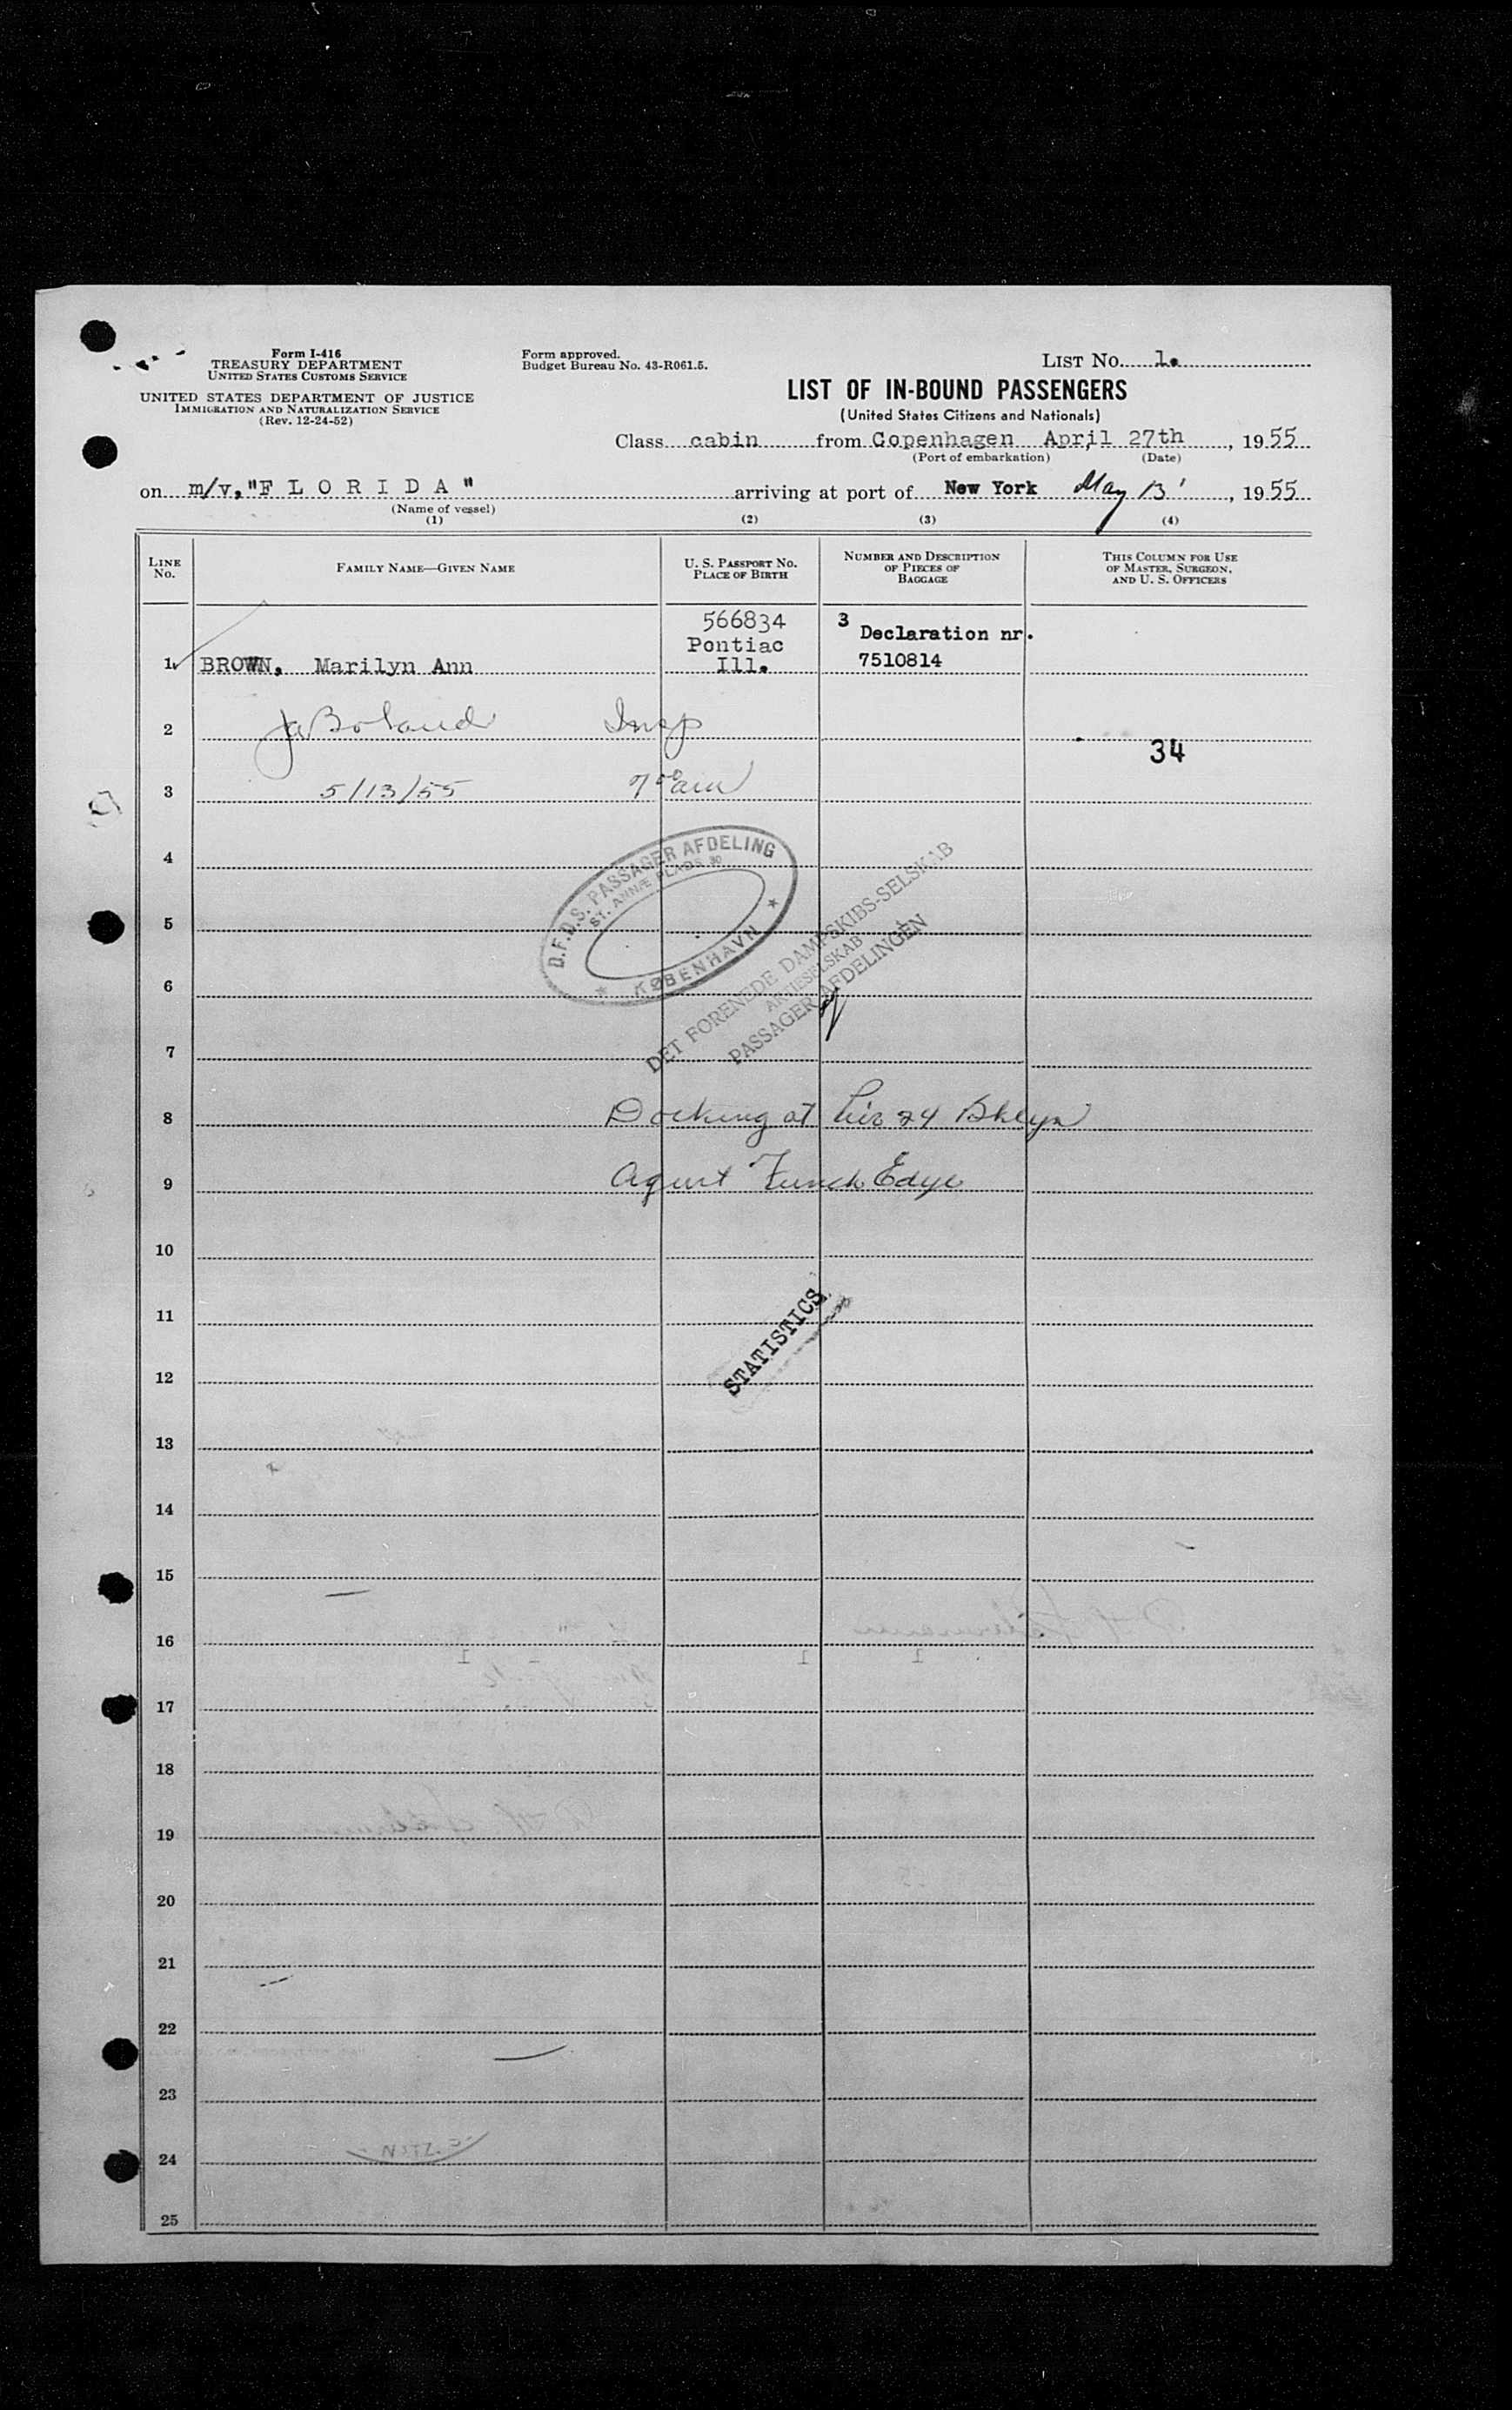 Form I-416
TREASURY DEPARTMENT
UNITED STATES CUSTOMS SERVICE
UNITED STATES DEPARTMENT OF JUSTICE
IMMIGRATION AND NATURALIZATION SERVICE
(Rev. 12-24-52)
Form approved.
Budget Bureau No. 43-R061.5.
LIST NO. 1.
LIST OF IN-BOUND PASSENGERS
(United States Citizens and Nationals)
Class cabin from Copenhagen April 27th, 1955
(Port of embarkation) (Date)
on m/v,"F L O R I D A" arriving at port of New York May 13', 1955
(Name of vessel)
(1) (2) (3) (4)
LINE NO.
FAMILY NAME—GIVEN NAME
U. S. PASSPORT NO.
PLACE OF BIRTH
NUMBER AND DESCRIPTION
OF PIECES OF
BAGGAGE
THIS COLUMN FOR USE
OF MASTER, SURGEON,
AND U. S. OFFICERS
1 BROWN, Marilyn Ann
566834
Pontiac
Ill.
3 Declaration nr.
7510814
2 Ja Boland Insp
34
3 5/13/55 7 50 am
4
D.F.D.S. PASSAGER AFDELING
ST. ANNÆ PLADS 30
KØBENHAVN
DET FORENEDE DAMPSKIBS-SELSKAB
AKTIESELSKAB
PASSAGER AFDELINGEN
5
6
7
8 Docking at Pier 24 Bklyn
9 Agent Funch Edye
10
11
STATISTICS
12
13
14
15
16
17
18
19
20
21
22
23
24
25